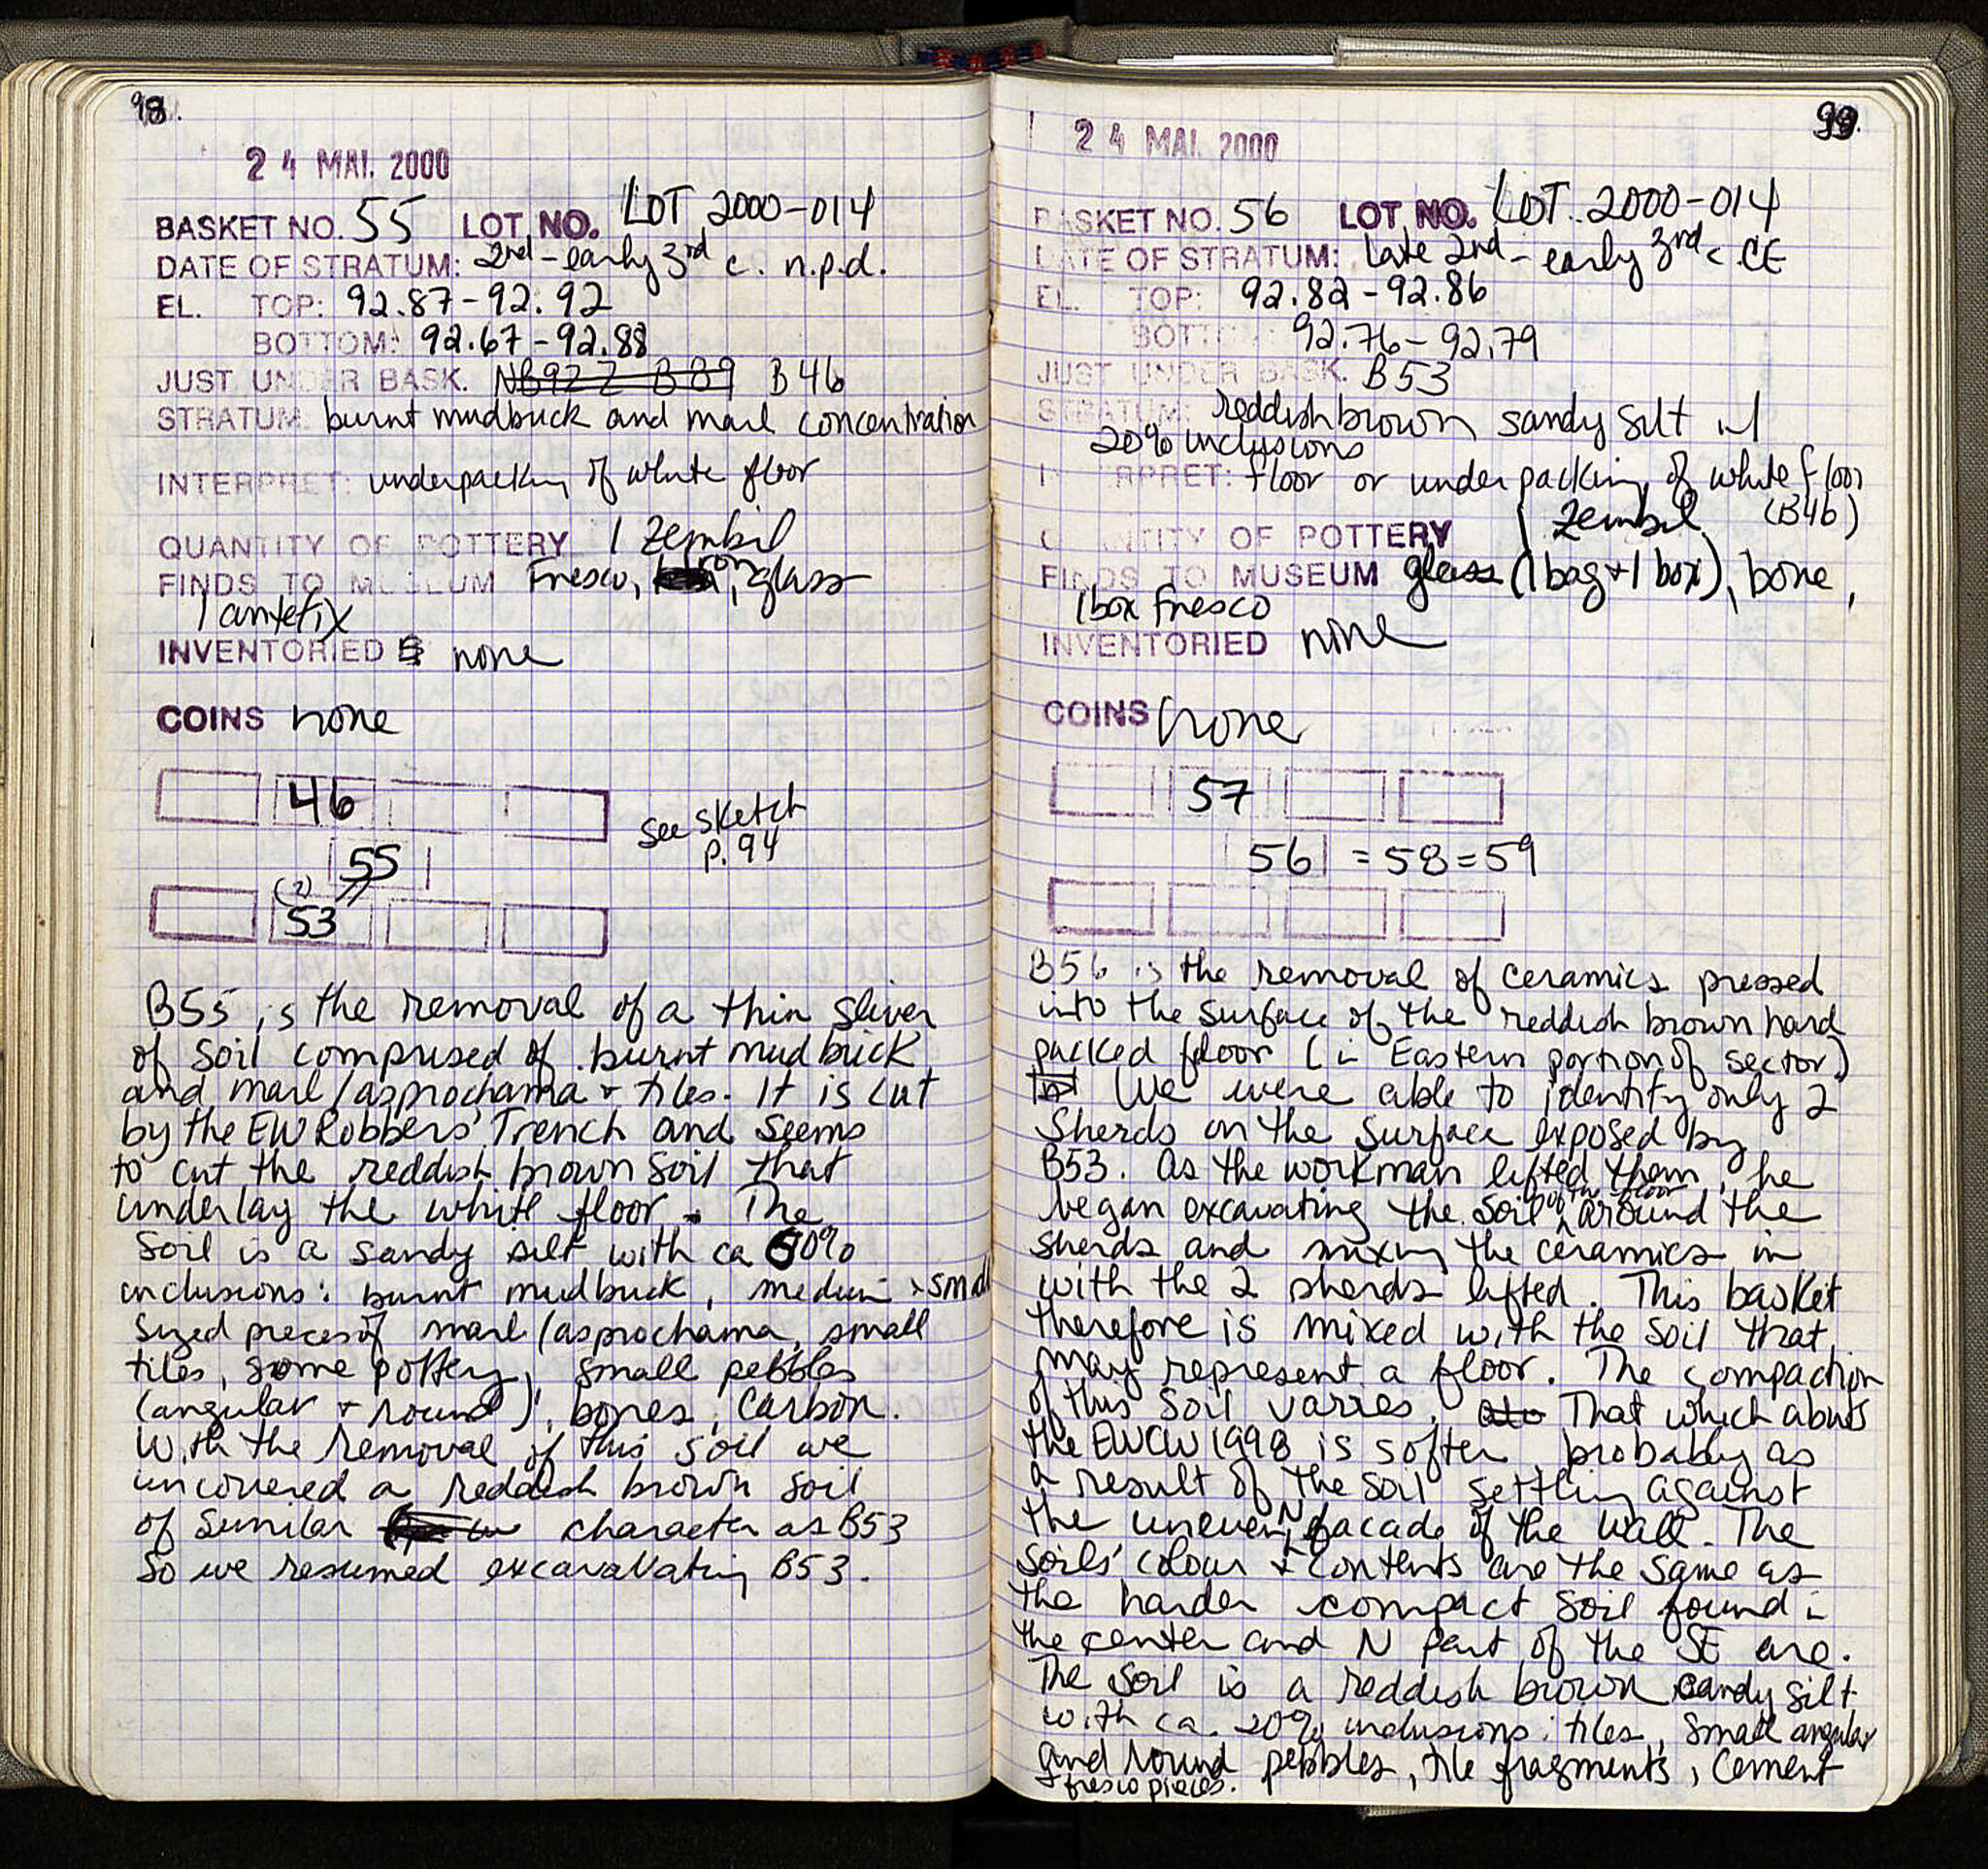 98.
24 MAI. 2000
BASKET NO. 55 LOT NO. LOT 2000-014
DATE OF STRATUM: 2nd-early 3rd c. n.p.d.
EL. TOP: 92.87-92.92
BOTTOM: 92.67-92.88
JUST UNDER BASK. NB922 B89 B46
STRATUM: burnt mudbrick and marl concentration
INTERPRET: underpacking of white floor
QUANTITY OF POTTERY 1 Zembil
FINDS TO MUSEUM Fresco, iron, glass
1 antefix
INVENTORIED none
COINS none
46
55
(?) //
53
see sketch
p. 94
B55 is the removal of a thin sliver
of soil comprised of burnt mudbrick
and marl/asprochama + tiles. It is cut
by the EW Robbers' Trench and seems
to cut the reddish brown soil that
underlay the white floor. The
soil is a sandy silt with ca 60%
inclusions: burnt mudbrick, medium + small
sized pieces of marl/asprochama, small
tiles, some pottery, small pebbles
(angular + round), bones, carbon.
With the removal of this soil we
uncovered a reddish brown soil
of similar character as B53
so we resumed excavavating B53.
99.
24 MAI. 2000
BASKET NO. 56 LOT NO. LOT. 2000-014
DATE OF STRATUM: late 2nd - early 3rd c CE
EL. TOP: 92.82-92.86
BOTTOM: 92.76-92.79
JUST UNDER BASK. B53
STRATUM: reddish brown sandy silt w/
20% inclusions
INTERPRET: floor or underpacking of white floor
(B46)
QUANTITY OF POTTERY 1 Zembil
FINDS TO MUSEUM glass (1 bag + 1 box), bone,
1 box fresco
INVENTORIED none
COINS none
57
56 = 58 = 59
B56 is the removal of ceramics pressed
into the surface of the reddish brown hard
packed floor (in Eastern portion of sector)
We were able to identify only 2
sherds on the surface exposed by
B53. As the workman lifted them, he
began excavating the soil of the floor around the
sherds and mixing the ceramics in
with the 2 sherds lifted. This basket
therefore is mixed with the soil that
may represent a floor. The compaction
of this soil varies. That which abuts
the EWCW1998 is softer probably as
a result of the soil settling against
the uneven N facade of the wall. The
soils' colour + contents are the same as
the harder compact soil found in
the center and N part of the SE are.
The soil is a reddish brown sandy silt
with ca. 20% inclusions: tiles, small angular
and round pebbles, tile fragments, cement
+ fresco pieces.